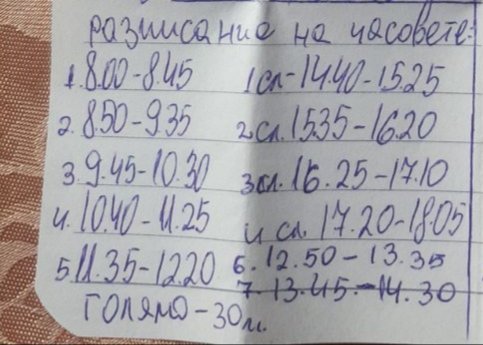 разписание на часовете:
1. 8.00-8.45 1сл-14.40-15.25
2. 8.50-9.35 2сл. 15.35-16.20
3. 9.45-10.30 3сл. 16.25-17.10
4. 10.40-11.25 4 сл. 17.20-18.05
5. 11.35-12.20 6. 12.50-13.35
7. 13.45.-14.30
ГОЛЯМО-30м.